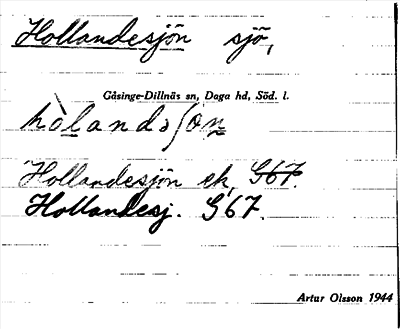 Hollandesjön sjö,
Gåsinge-Dillnäs sn, Daga hd, Söd. l.
hòlandəʃon
Hollandesjön ek, G67.
Hollandesj. G67.
Artur Olsson 1944